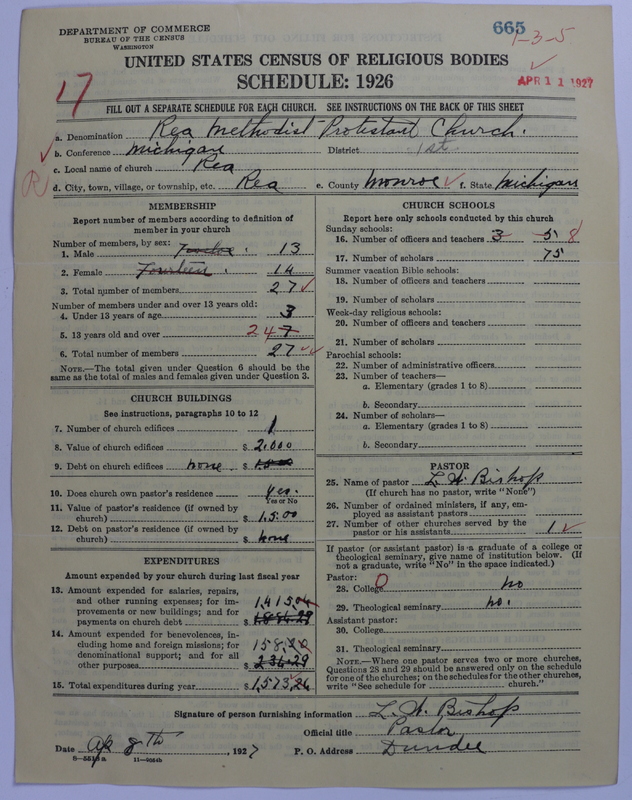 DEPARTMENT OF COMMERCE
BUREAU OF THE CENSUS
WASHINGTON
665
1-3-5
UNITED STATES CENSUS OF RELIGIOUS BODIES
SCHEDULE: 1926
APR 11 1927
17
FILL OUT A SEPARATE SCHEDULE FOR EACH CHURCH. SEE INSTRUCTIONS ON THE BACK OF THIS SHEET
a. Denomination Rea Methodist Protestant Church.
b. Conference Michigan District 1st
c. Local name of church Rea
R
d. City, town, village, or township, etc. Rea e. County Monroe f. State Michigan
MEMBERSHIP
Report number of members according to definition of
member in your church
Number of members, by sex:
1. Male Twelve. 13
2. Female Fourteen. 14
3. Total number of members 27
Number of members under and over 13 years old:
4. Under 13 years of age 3
5. 13 years old and over 24 7
6. Total number of members 27
NOTE.—The total given under Question 6 should be the
same as the total of males and females given under Question 3.
CHURCH BUILDINGS
See instructions, paragraphs 10 to 12
7. Number of church edifices 1
8. Value of church edifices $ 2,000
9. Debt on church edifices none. $
10. Does church own pastor's residence Yes.
Yes or No
11. Value of pastor's residence (if owned by
church) $ 1,500
12. Debt on pastor's residence (if owned by
church) $ none
EXPENDITURES
Amount expended by your church during last fiscal year
13. Amount expended for salaries, repairs,
and other running expenses; for im-
provements or new buildings; and for
payments on church debt $ 1,415.04
14. Amount expended for benevolences, in-
cluding home and foreign missions; for
denominational support; and for all
other purposes 158.20
$ 236.29
15. Total expenditures during year $ 1,573.24
CHURCH SCHOOLS
Report here only schools conducted by this church
Sunday schools:
16. Number of officers and teachers 3 5 8
17. Number of scholars 75
Summer vacation Bible schools:
18. Number of officers and teachers
19. Number of scholars
Week-day religious schools:
20. Number of officers and teachers
21. Number of scholars
Parochial schools:
22. Number of administrative officers
23. Number of teachers—
a. Elementary (grades 1 to 8)
b. Secondary
24. Number of scholars—
a. Elementary (grades 1 to 8)
b. Secondary
PASTOR
25. Name of pastor L. W. Bishop
(If church has no pastor, write "None")
26. Number of ordained ministers, if any, em-
ployed as assistant pastors
27. Number of other churches served by the
pastor or his assistants 1
If pastor (or assistant pastor) is a graduate of a college or
theological seminary, give name of institution below. (If
not a graduate, write "No" in the space indicated.)
Pastor: 0
28. College no
29. Theological seminary no.
Assistant pastor:
30. College
31. Theological seminary
NOTE.—Where one pastor serves two or more churches,
Questions 28 and 29 should be answered only on the schedule
for one of the churches; on the schedules for the other churches,
write "See schedule for church."
Signature of person furnishing information L. W. Bishop
Official title Pastor
Date Ap 8th, 1927 P. O. Address Dundee